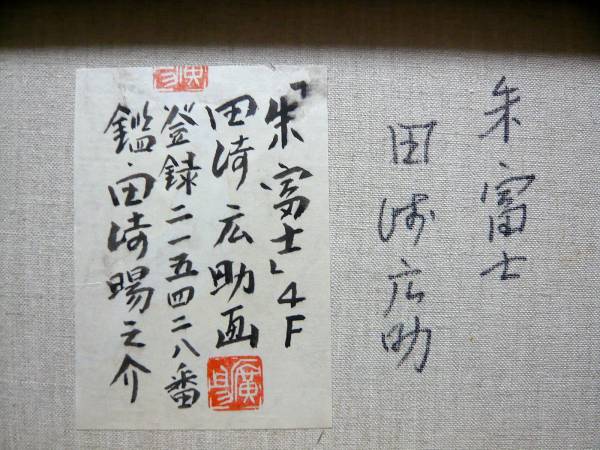 朱富士
田崎広助
「朱富士」4F
田崎広助画
登録二一五四二八番
鑑・田崎暘之介
廣